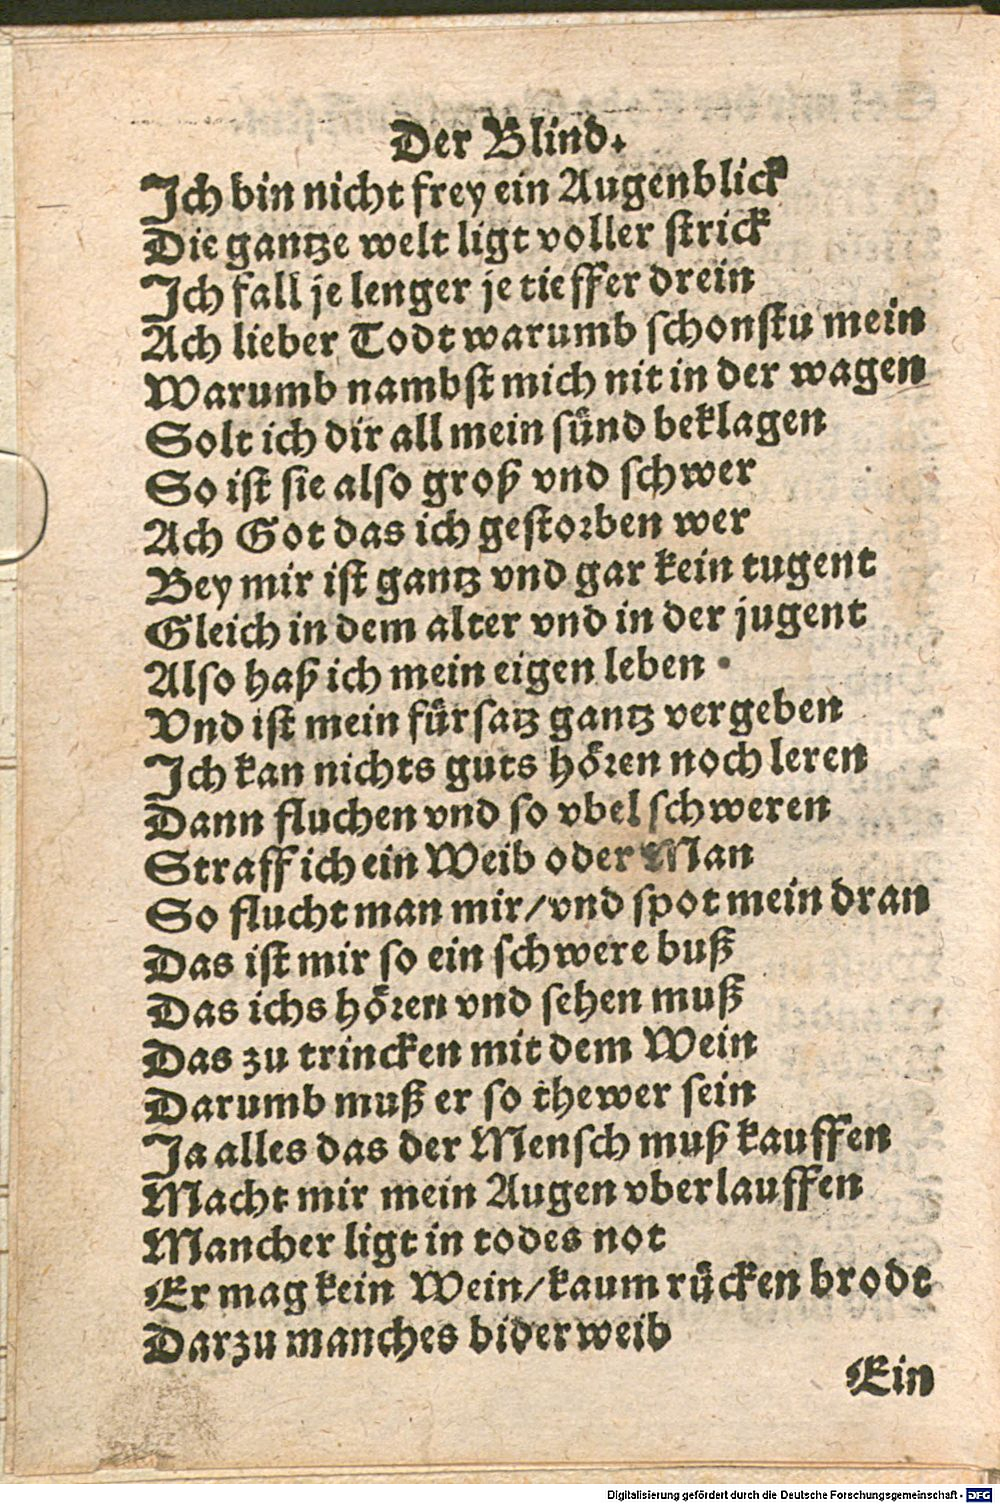 Der Blind.
Ich bin nicht frey ein Augenblick
Die gantze welt ligt voller strick
Ich fall je lenger je tieffer drein
Ach lieber Todt warumb schonstu mein
Warumb nambst mich nit in der wagen
Solt ich dir all mein sünd beklagen
So ist sie also groß vnd schwer
Ach Got das ich gestorben wer
Bey mir ist gantz vnd gar kein tugent
Gleich in dem alter vnd in der jugent
Also haß ich mein eigen leben
Vnd ist mein fürsatz gantz vergeben
Ich kan nichts guts hören noch leren
Dann fluchen vnd so vbel schweren
Straff ich ein Weib oder Man
So flucht man mir/vnd spot mein dran
Das ist mir so ein schwere buß
Das ichs hören vnd sehen muß
Das zu trincken mit dem Wein
Darumb muß er so thewer sein
Ja alles das der Mensch muß kauffen
Macht mir mein Augen vberlauffen
Mancher ligt in todes not
Er mag kein Wein/kaum rücken brodt
Darzu manches biderweib
Ein
Digitalisierung gefördert durch die Deutsche Forschungsgemeinschaft - DFG